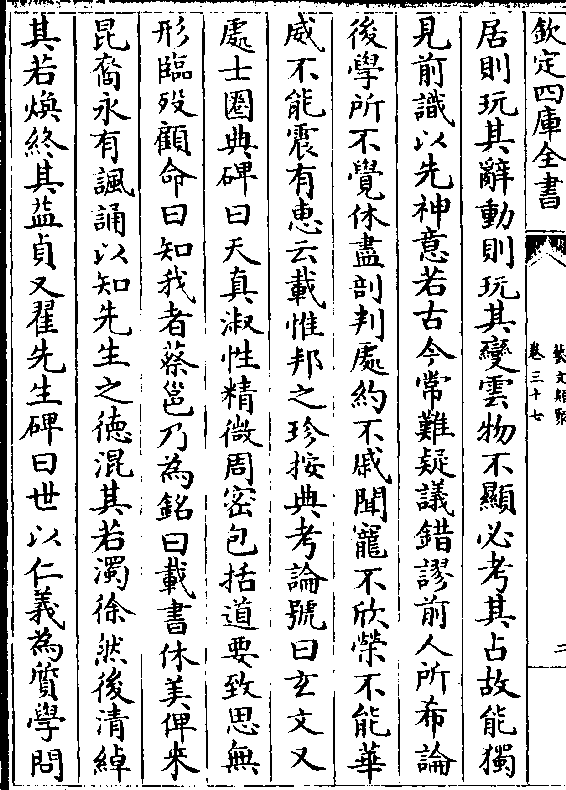 欽定四庫全書
藝文類聚
卷三十七
二
居則玩其辭動則玩其變雲物不顯必考其占故能獨
見前識以先神意若古今常難疑議錯謬前人所希論
後學所不覺休盡剖判處約不戚聞寵不欣榮不能華
威不能震有惠云載惟邦之珍按典考論號曰玄文又
處士圏典碑曰天真淑性精微周密包括道要致思無
形臨殁顧命曰知我者蔡邕乃為銘曰載書休美俾来
昆裔永有諷誦以知先生之徳混其若濁徐然後清綽
其若煥終其益貞又翟先生碑曰世以仁義為質學問